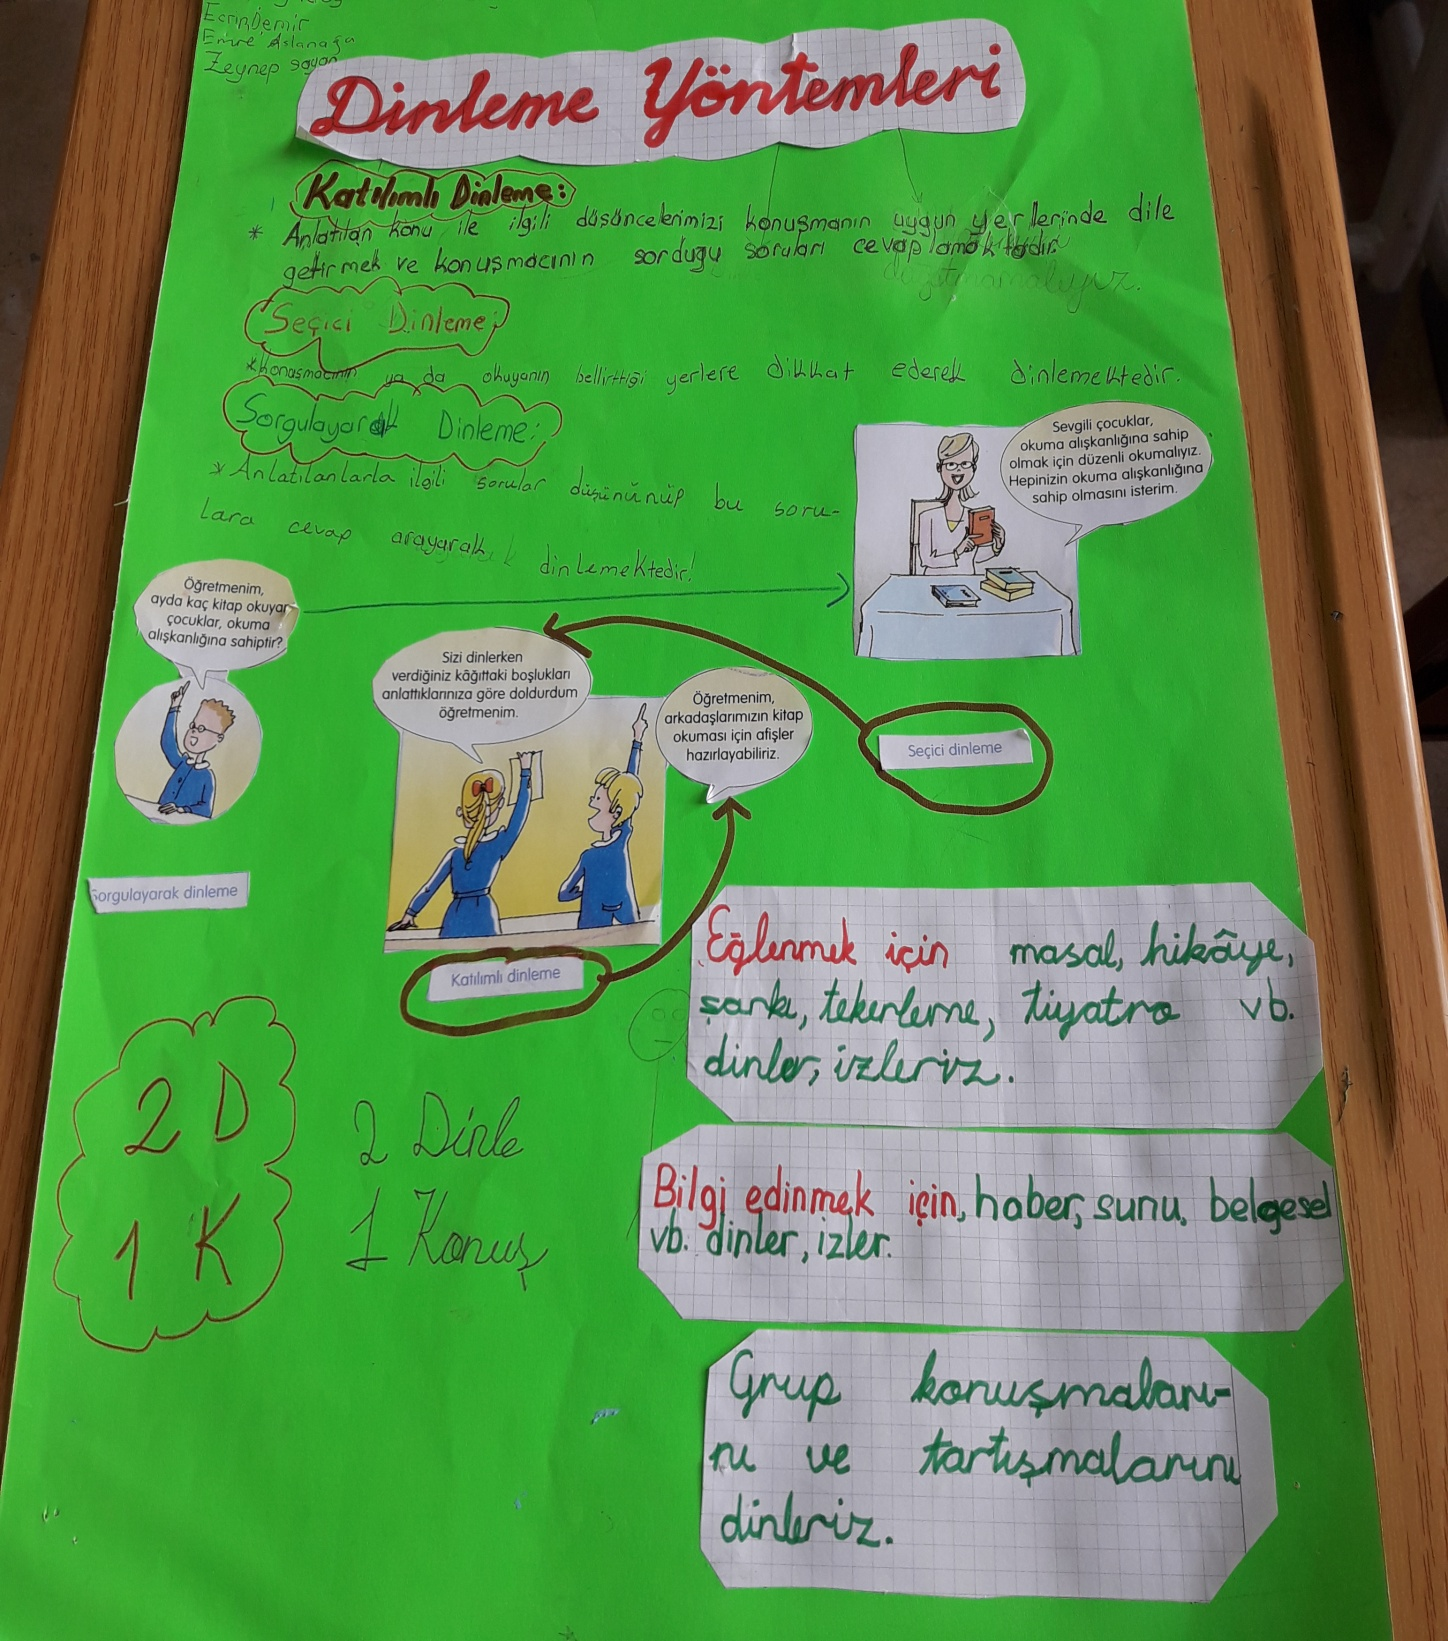 Ecrin Demir
Emre Aslanağa
Zeynep sayan
Dinleme Yöntemleri
Katılımlı Dinleme:
* Anlatılan konu ile ilgili düşüncelerimizi konuşmanın uygun yerlerinde dile
getirmek ve konuşmacının sorduğu soruları cevaplamaktadır.
Seçici Dinleme;
*Konuşmacının ya da okuyanın bellirttiği yerlere dikkat ederek dinlemektedir.
Sorgulayarak Dinleme:
* Anlatılanlarla ilgili sorular düşününüp bu soru-
lara cevap arayarak dinlemektedir!
Sevgili çocuklar,
okuma alışkanlığına sahip
olmak için düzenli okumalıyız.
Hepinizin okuma alışkanlığına
sahip olmasını isterim.
Öğretmenim,
ayda kaç kitap okuyan
çocuklar, okuma
alışkanlığına sahiptir?
Sizi dinlerken
verdiğiniz kâğıttaki boşlukları
anlattıklarınıza göre doldurdum
öğretmenim.
Öğretmenim,
arkadaşlarımızın kitap
okuması için afişler
hazırlayabiliriz.
Seçici dinleme
Sorgulayarak dinleme
Katılımlı dinleme
Eğlenmek için masal, hikâye,
şarkı, tekerleme, tiyatro vb.
dinler, izleriz.
2 D
1 K
2 Dinle
1 Konuş
Bilgi edinmek için, haber, sunu, belgesel
vb. dinler, izler.
Grup konuşmaları-
nı ve tartışmalarını
dinleriz.